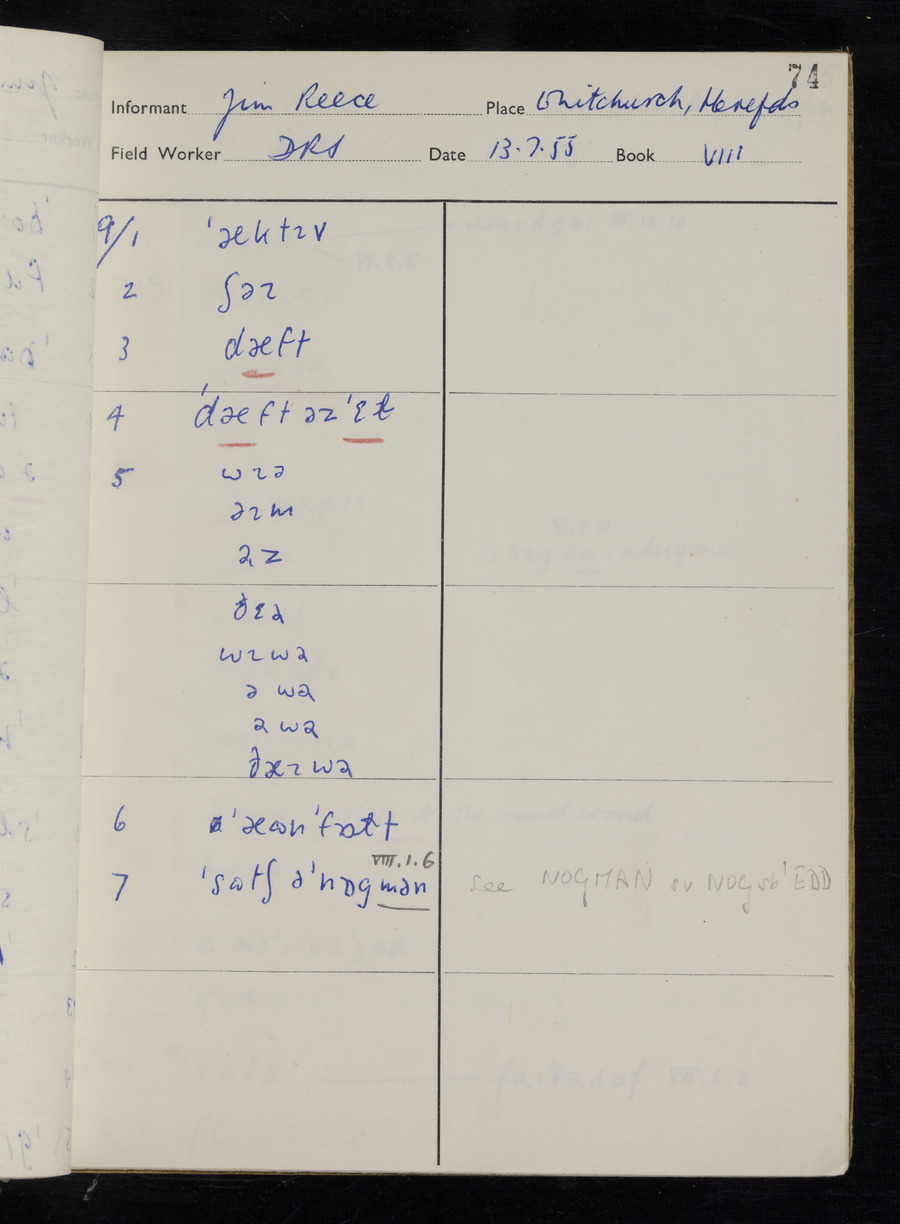 74
Informant Jim Reece Place Whitchurch, Herefds
Field Worker DRS Date 13.7.55 Book VIII
9/1 ˈæktɪv
2 ʃəɪ
3 dæft
4 ˈdæft əz ˈɛt
5 wɪə
əɪm
əz
ðɛə
wɪwə
ə wə
ə wə
ðæɪwə
7 ˈsɒtʃ əˈnɒgmən VIII.1.6 see NOGMAN sv NOG sb¹ EDD